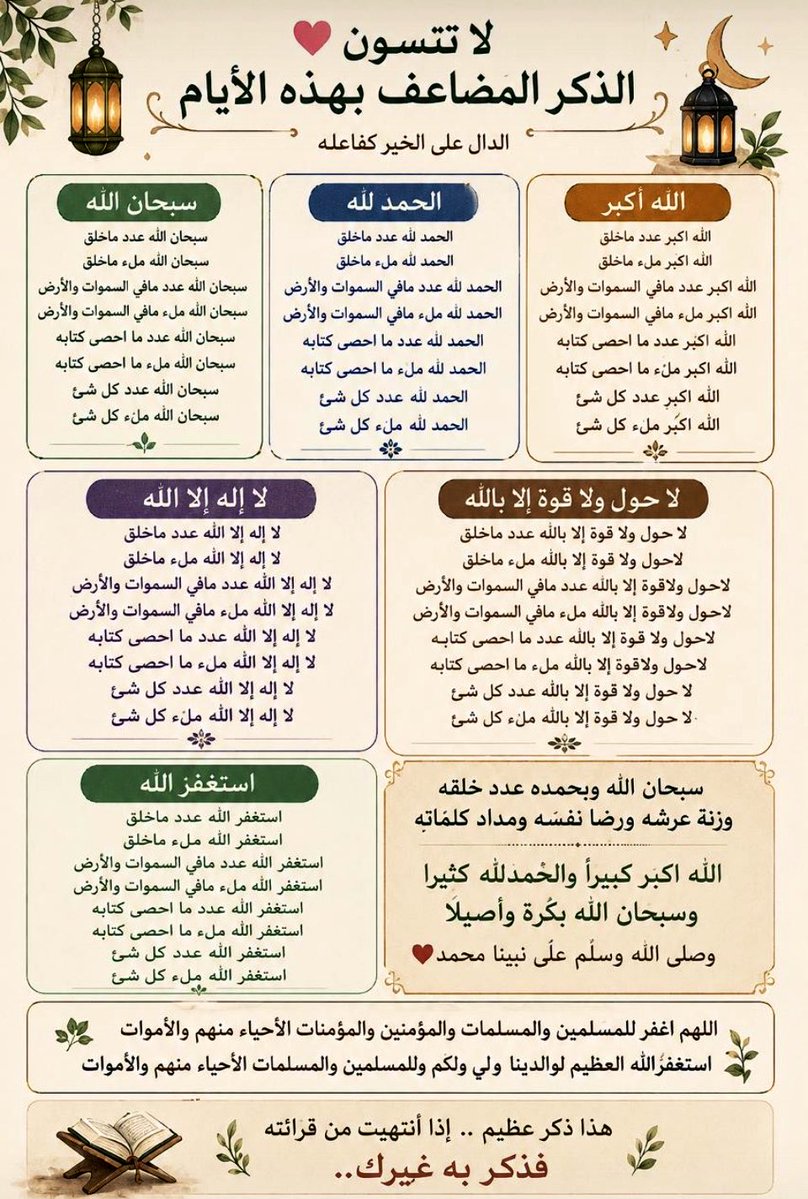 لا تتسون
الذكر المضاعف بهذه الأيام
الدال على الخير كفاعله
الله أكبر
الله اكبر عدد ماخلق
الله اكبر ملء ماخلق
الله اكبر عدد مافي السموات والأرض
الله اكبر ملء مافي السموات والأرض
الله اكبر عدد ما احصى كتابه
الله اكبر ملء ما احصى كتابه
الله اكبر عدد كل شئ
الله اكبر ملء كل شئ
الحمد لله
الحمد لله عدد ماخلق
الحمد لله ملء ماخلق
الحمد لله عدد مافي السموات والأرض
الحمد لله ملء مافي السموات والأرض
الحمد لله عدد ما احصى كتابه
الحمد لله ملء ما احصى كتابه
الحمد لله عدد كل شئ
الحمد لله ملء كل شئ
سبحان الله
سبحان الله عدد ماخلق
سبحان الله ملء ماخلق
سبحان الله عدد مافي السموات والأرض
سبحان الله ملء مافي السموات والأرض
سبحان الله عدد ما احصى كتابه
سبحان الله ملء ما احصى كتابه
سبحان الله عدد كل شئ
سبحان الله ملء كل شئ
لا حول ولا قوة إلا بالله
لا حول ولا قوة إلا بالله عدد ماخلق
لاحول ولا قوة إلا بالله ملء ماخلق
لاحول ولاقوة إلا بالله عدد مافي السموات والأرض
لاحول ولاقوة إلا بالله ملء مافي السموات والأرض
لاحول ولا قوة إلا بالله عدد ما احصى كتابه
لاحول ولاقوة إلا بالله ملء ما احصى كتابه
لا حول ولا قوة إلا بالله عدد كل شئ
لا حول ولا قوة إلا بالله ملء كل شئ
لا إله إلا الله
لا إله إلا الله عدد ماخلق
لا إله إلا الله ملء ماخلق
لا إله إلا الله عدد مافي السموات والأرض
لا إله إلا الله ملء مافي السموات والأرض
لا إله إلا الله عدد ما احصى كتابه
لا إله إلا الله ملء ما احصى كتابه
لا إله إلا الله عدد كل شئ
لا إله إلا الله ملء كل شئ
سبحان الله وبحمده عدد خلقه
وزنة عرشه ورضا نفسَه ومداد كلمَاتهِ
الله اكبَر كبيراً والحْمدَلله كثيرا
وسبحان الله بكُرة وأصيلاَ
وصلى الله وسلُم علُى نبينا محمد
استغفر الله
استغفر الله عدد ماخلق
استغفر الله ملء ماخلق
استغفر الله عدد مافي السموات والأرض
استغفر الله ملء مافي السموات والأرض
استغفر الله عدد ما احصى كتابه
استغفر الله ملء ما احصى كتابه
استغفر الله عدد كل شئ
استغفر الله ملء كل شئ
اللهم اغفر للمسلمين والمسلمات والمؤمنين والمؤمنات الأحياء منهم والأموات
استغفرُالله العظيم لوالدينا ولي ولكَم وللمسلمين والمسلمات الأحياء منهم والأموات
هذا ذكر عظيم .. إذا أنتهيت من قرائته
فذكر به غيرك..